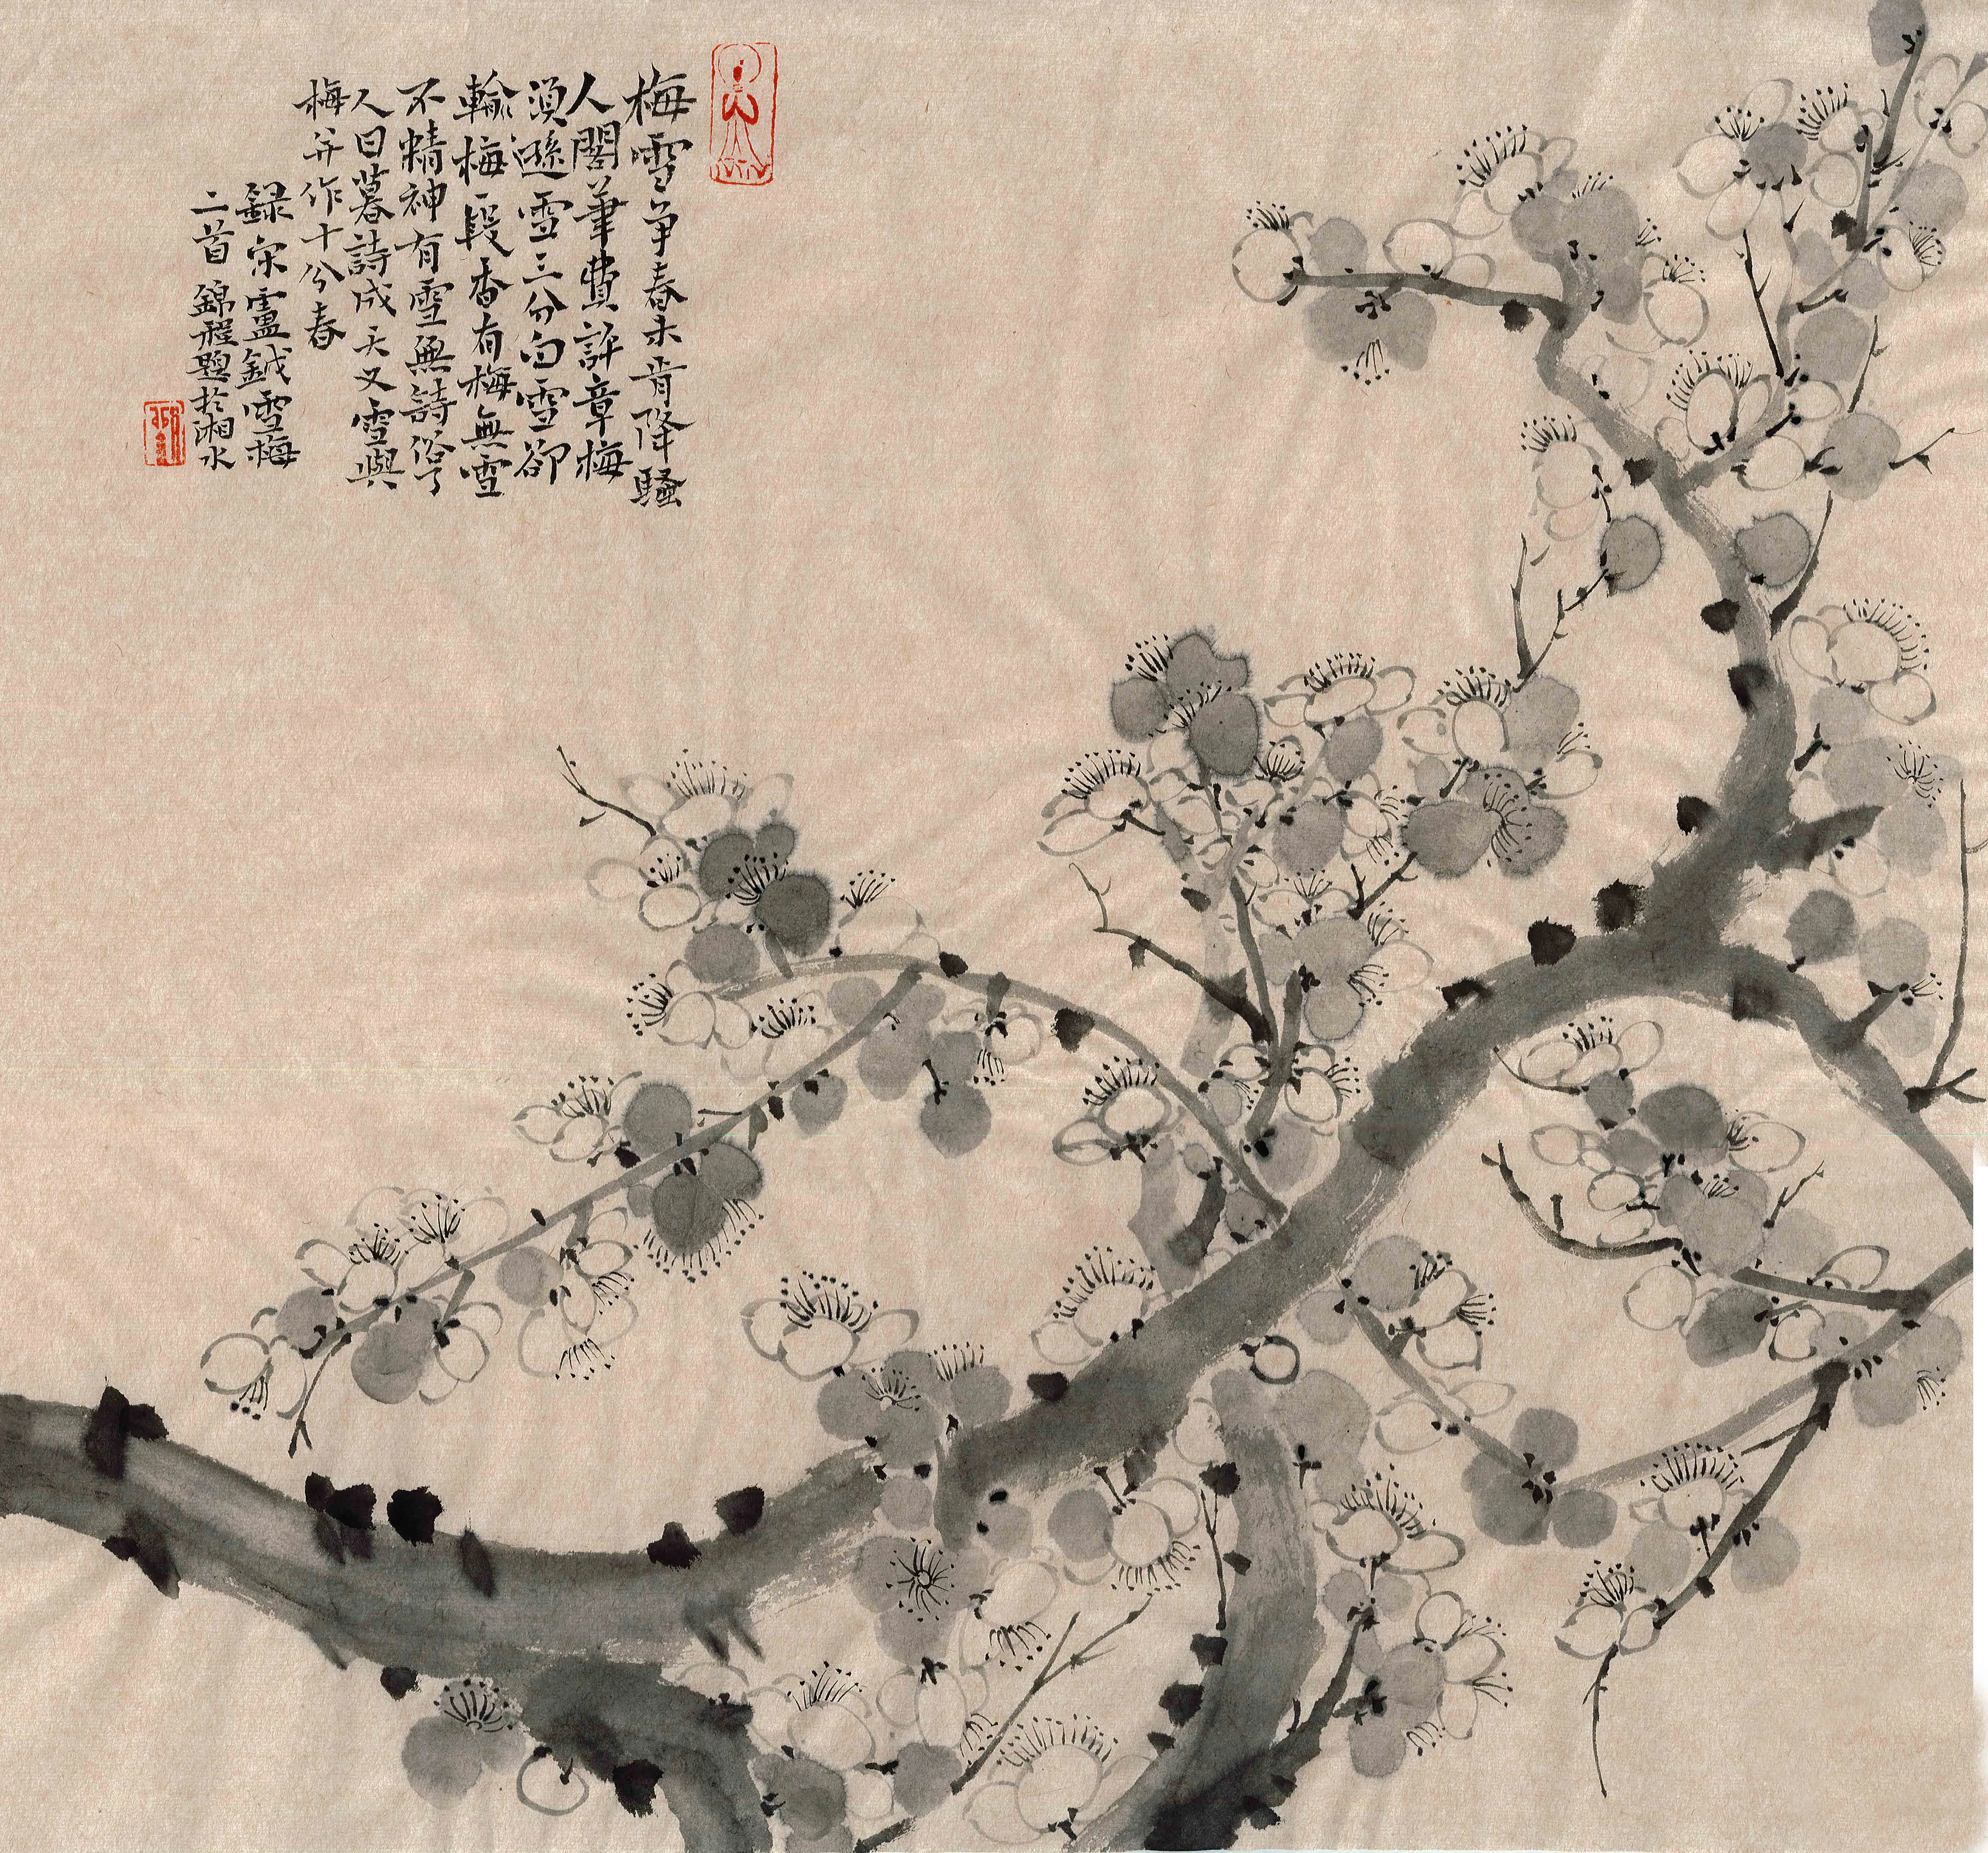 梅雪争春未肯降騷
人閣筆費評章梅
須遜雪三分白雪卻
輸梅一段香有梅無雪
不精神有雪無詩俗了
人日暮詩成天又雪與
梅并作十分春
録宋盧鉞雪梅
二首錦程題於湘水